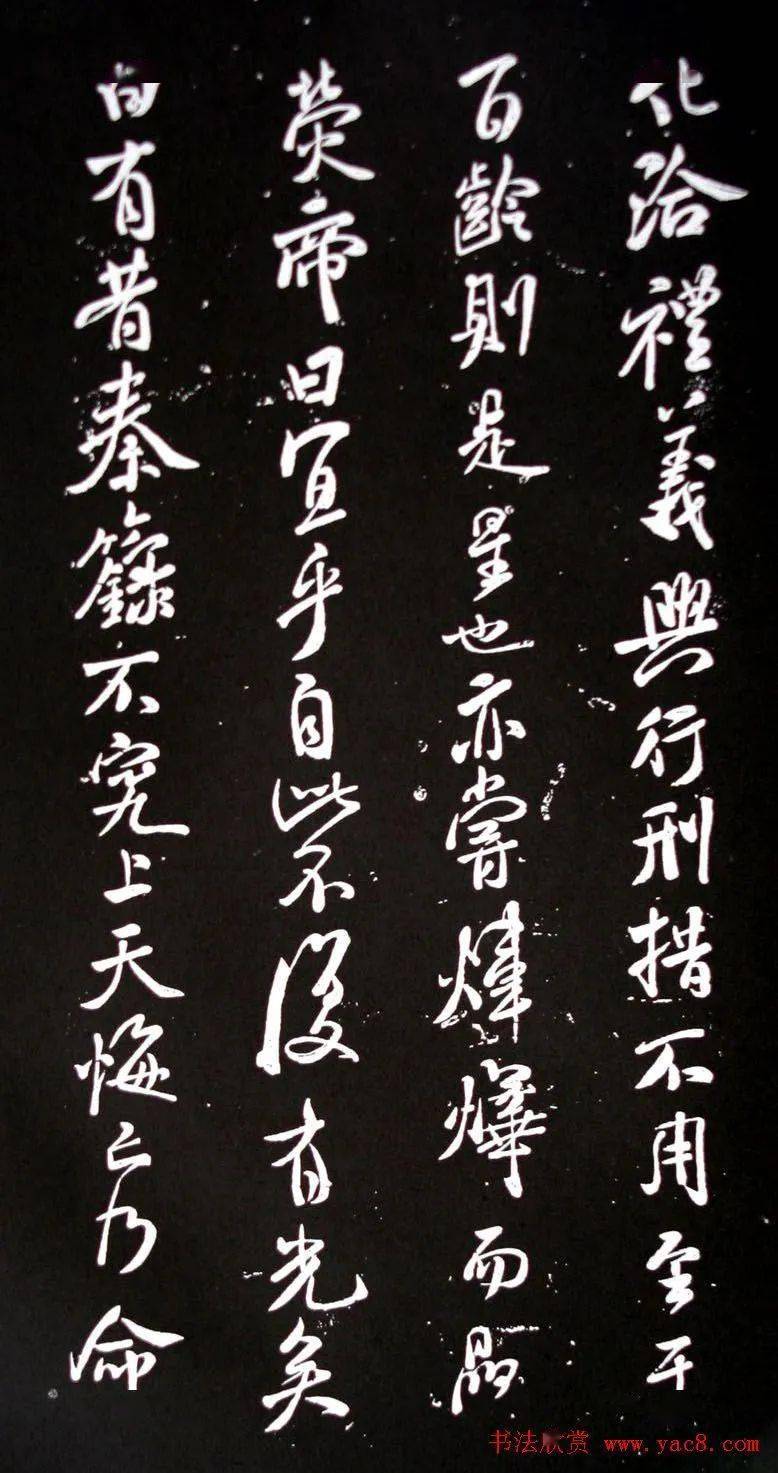 化洽禮義興行刑措不用至于
百齡則是星也亦嘗煒燁而晶
熒帝曰宜乎自此不復有光矣
自有昔秦籙不究上天悔亡乃命
书法欣赏 www.yac8.com